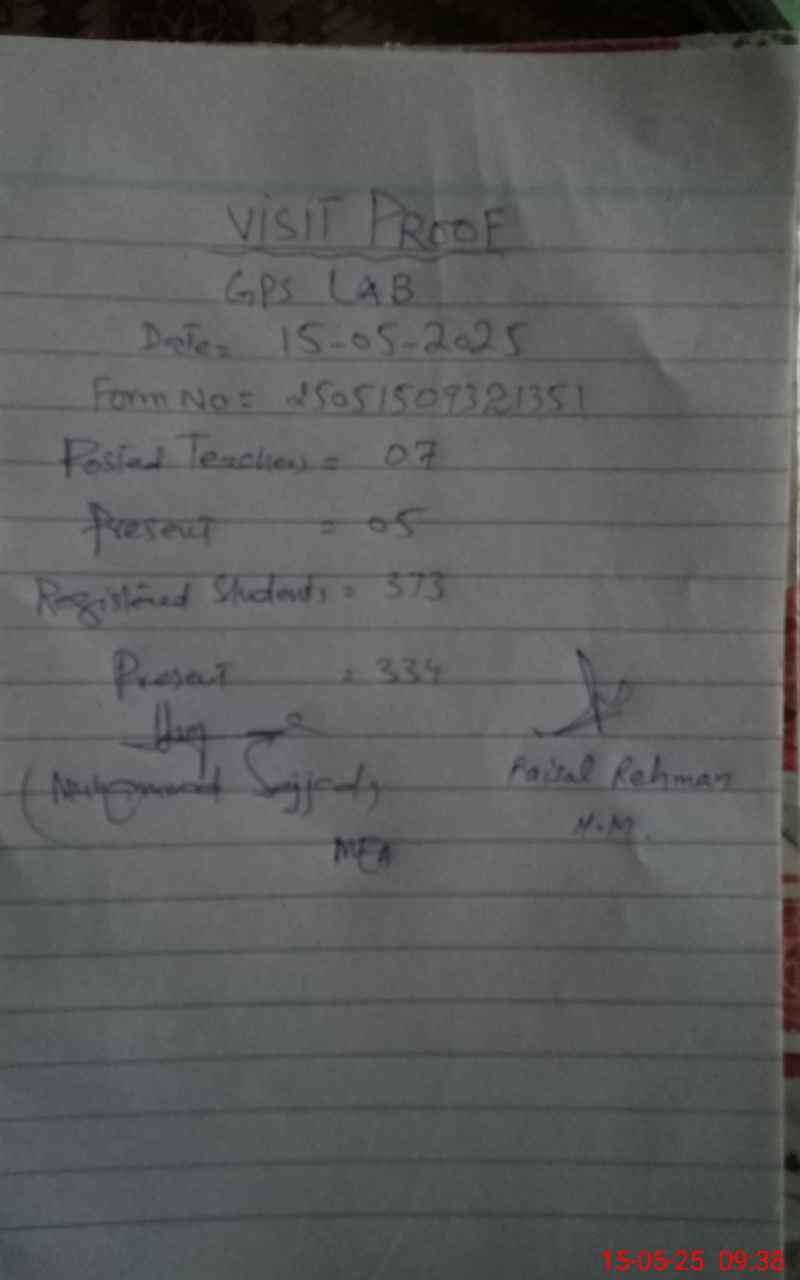 VISIT PROOF
GPS LAB
Date= 15-05-2025
Form No= 25051509321351
Posted Teachers = 07
Present = 05
Registered Students = 373
Present = 334
(Muhammad Sajjad)
MEA
Faisal Rehman
H.M.
15-05-25 09:38